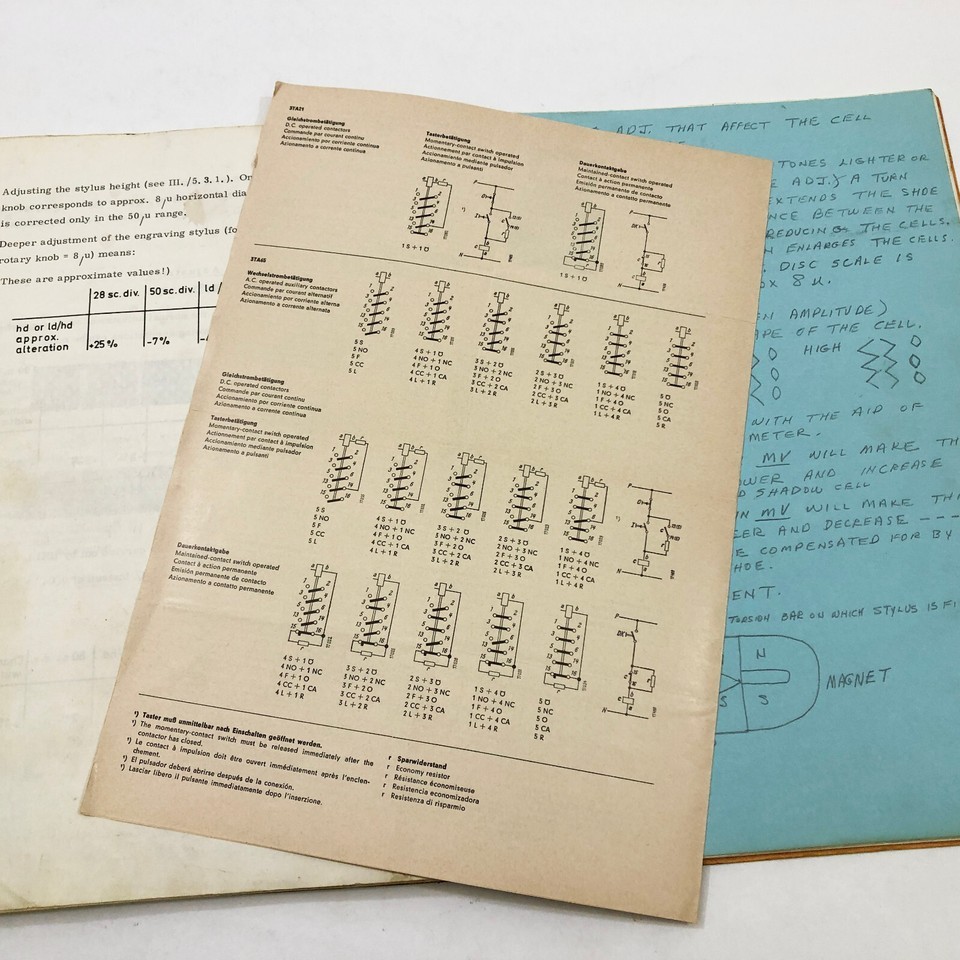 Adjusting the stylus height (see III. /5. 3. 1. ). On
knob corresponds to approx. 8/u horizontal dia
is corrected only in the 50/u range.
Deeper adjustment of the engraving stylus (fo
rotary knob = 8/u) means:
These are approximate values!)
28 sc. div. 50 sc. div. ld /
hd or ld/hd
approx.
alteration +25% -7%
3TA21
Gleichstrombetätigung
D.C. operated contactors
Commande par courant continu
Accionamiento por corriente continua
Azionamento a corrente continua
Tasterbetätigung
Momentary-contact switch operated
Actionnement par contact à impulsion
Accionamiento mediante pulsador
Azionamento a pulsanti
Dauerkontaktgabe
Maintained-contact switch operated
Contact à action permanente
Emisión permanente de contacto
Azionamento a contatti permanente
1 S + 1 Ö
1 S + 1 Ö
3TA65
Wechselstrombetätigung
A.C. operated auxiliary contactors
Commande par courant alternatif
Accionamiento por corriente alterna
Azionamento a corrente alternata
5 S
5 NO
5 F
5 CC
5 L
4 S + 1 Ö
4 NO + 1 NC
4 F + 1 O
4 CC + 1 CA
4 L + 1 R
3 S + 2 Ö
3 NO + 2 NC
3 F + 2 O
3 CC + 2 CA
3 L + 2 R
2 S + 3 Ö
2 NO + 3 NC
2 F + 3 O
2 CC + 3 CA
2 L + 3 R
1 S + 4 Ö
1 NO + 4 NC
1 F + 4 O
1 CC + 4 CA
1 L + 4 R
5 Ö
5 NC
5 O
5 CA
5 R
Gleichstrombetätigung
D.C. operated contactors
Commande par courant continu
Accionamiento por corriente continua
Azionamento a corrente continua
Tasterbetätigung
Momentary-contact switch operated
Actionnement par contact à impulsion
Accionamiento mediante pulsador
Azionamento a pulsanti
5 S
5 NO
5 F
5 CC
5 L
4 S + 1 Ö
4 NO + 1 NC
4 F + 1 O
4 CC + 1 CA
4 L + 1 R
3 S + 2 Ö
3 NO + 2 NC
3 F + 2 O
3 CC + 2 CA
3 L + 2 R
2 S + 3 Ö
2 NO + 3 NC
2 F + 3 O
2 CC + 3 CA
2 L + 3 R
1 S + 4 Ö
1 NO + 4 NC
1 F + 4 O
1 CC + 4 CA
1 L + 4 R
Dauerkontaktgabe
Maintained-contact switch operated
Contact à action permanente
Emisión permanente de contacto
Azionamento a contatto permanente
4 S + 1 Ö
4 NO + 1 NC
4 F + 1 O
4 CC + 1 CA
4 L + 1 R
3 S + 2 Ö
3 NO + 2 NC
3 F + 2 O
3 CC + 2 CA
3 L + 2 R
2 S + 3 Ö
2 NO + 3 NC
2 F + 3 O
2 CC + 3 CA
2 L + 3 R
1 S + 4 Ö
1 NO + 4 NC
1 F + 4 O
1 CC + 4 CA
1 L + 4 R
5 Ö
5 NC
5 O
5 CA
5 R
¹) Taster muß unmittelbar nach Einschalten geöffnet werden.
¹) The momentary-contact switch must be released immediately after the
contactor has closed.
¹) Le contact à impulsion doit être ouvert immédiatement après l'enclen-
chement.
¹) El pulsador deberá abrirse después de la conexión.
¹) Lasciar libero il pulsante immediatamente dopo l'inserzione.
r Sparwiderstand
r Economy resistor
r Résistance économiseuse
r Resistencia economizadora
r Resistenza di risparmio
ADJ. THAT AFFECT THE CELL
TONES LIGHTER OR
ADJ.) A TURN
EXTENDS THE SHOE
NCE BETWEEN THE
REDUCING THE CELLS.
N ENLARGES THE CELLS.
DISC SCALE IS
OX 8 u.
N AMPLITUDE)
APE OF THE CELL.
HIGH
WITH THE AID OF
METER.
MV WILL MAKE TH
OWER AND INCREASE
D SHADOW CELL
IN MV WILL MAKE THE
EER AND DECREASE ---
E COMPENSATED FOR BY
HOE.
ENT.
TORSION BAR ON WHICH STYLUS IS FI
N
S S
MAGNET